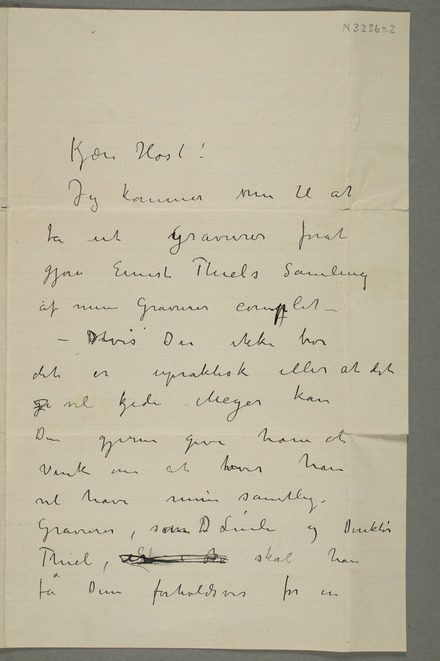 N 3236-2
Kjære Høst!
Jeg kommer nu til at
ta ut Gravurer forat
gjøre Ernst Thiels Samling
af mine Gravurer complet –
– Hvis De ikke tror
det er upraktisk eller at det
vil kjede Meyer kan
De gjerne give ham et
Vink om at hvis han
vil have mine samtlig.
Gravurer, som D Linde og Direktør
Thiel, skal han
få dem forholdsvis for en